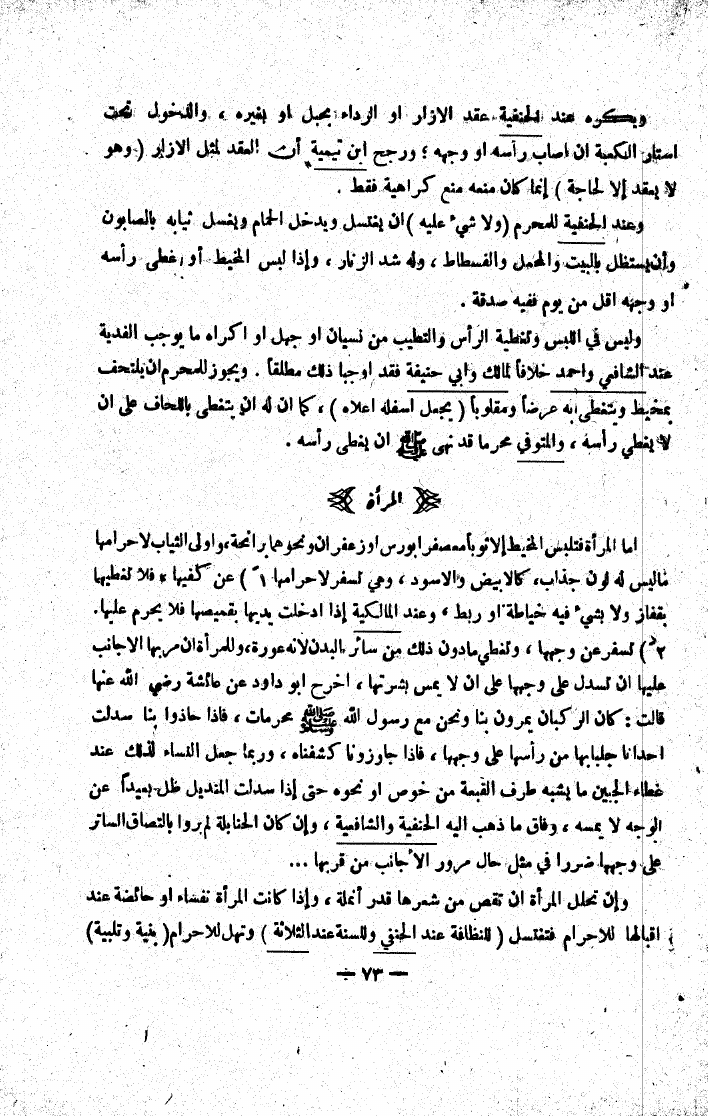 ويكره عند الحنفية عقد الازار او الرداء بحبل او بغيره ، والدخول تحت
استار الكعبة ان اصاب رأسه او وجهه ؛ ورجح ابن تيمية أن العقد لمثل الازار ( وهو
لا يعقد إلا لحاجة ) إنما كان منعه منع كراهية فقط .
وعند الحنفية للمحرم (ولا شيء عليه )ان يغتسل ويدخل الحمام ويغسل ثيابه بالصابون
وأن يستظل بالبيت والمحمل والفسطاط ، وله شد الزنار ، وإذا لبس المخيط أو غطى رأسه
او وجهه اقل من يوم ففيه صدقة .
وليس في اللبس وتغطية الرأس والتطيب من نسيان او جهل او اكراه ما يوجب الفدية
عند الشافعي واحمد خلافاً لمالك وابي حنيفة فقد اوجبا ذلك مطلقاً . ويجوز للمحرم ان يلتحف
بمخيط ويتغطى به عرضاً ومقلوباً ( يجعل اسفله اعلاه ) ، كما ان له ان يتغطى باللحاف على ان
لا يغطي رأسه ، والمتوفي محرما قد نهى ﷺ ان يغطى رأسه .
المرأة
اما المرأة فتلبس المخيط إلا ثوبا معصفرا بورس او زعفران ونحوهما برائحة،واولى الثياب لاحرامها
ماليس له لون جذاب، كالابيض والاسود ، وهي تسفر لاحرامها ١ً ) عن كفيها ، فلا تغطيها
بقفاز ولا بشيء فيه خياطة او ربط ، وعند المالكية إذا ادخلت يديها بقميصها فلا يحرم عليها.
٢ً ) تسفر عن وجهها ، وتغطي مادون ذلك من سائر البدن لانه عورة، وللمرأة ان مر بها الاجانب
عليها ان تسدل على وجهها على ان لا يمس بشرتها ، اخرج ابو داود عن عائشة رضي الله عنها
قالت : كان الركبان يمرون بنا ونحن مع رسول الله ﷺ محرمات ، فاذا حاذوا بنا سدلت
احدانا جلبابها من رأسها على وجهها ، فاذا جاوزونا كشفناه ، وربما جعل النساء لذلك عند
غطاء الجبين ما يشبه طرف القبعة من خوص او نحوه حتى إذا سدلت المنديل ظل بعيداً عن
الوجه لا يمسه ، وفاق ما ذهب اليه الحنفية والشافعية ، وإن كان الحنابلة لم يروا بالتصاق الساتر
على وجهها ضررا في مثل حال مرور الأجانب من قربها ...
وإن تحلل المرأة ان تقص من شعرها قدر أنملة ، وإذا كانت المرأة نفساء او حائضة عند
اقبالها للاحرام فتغتسل ( للنظافة عند الحنفي وللسنة عند الثلاثة ) وتهل للاحرام( بنية وتلبية)
— ٧٣ —